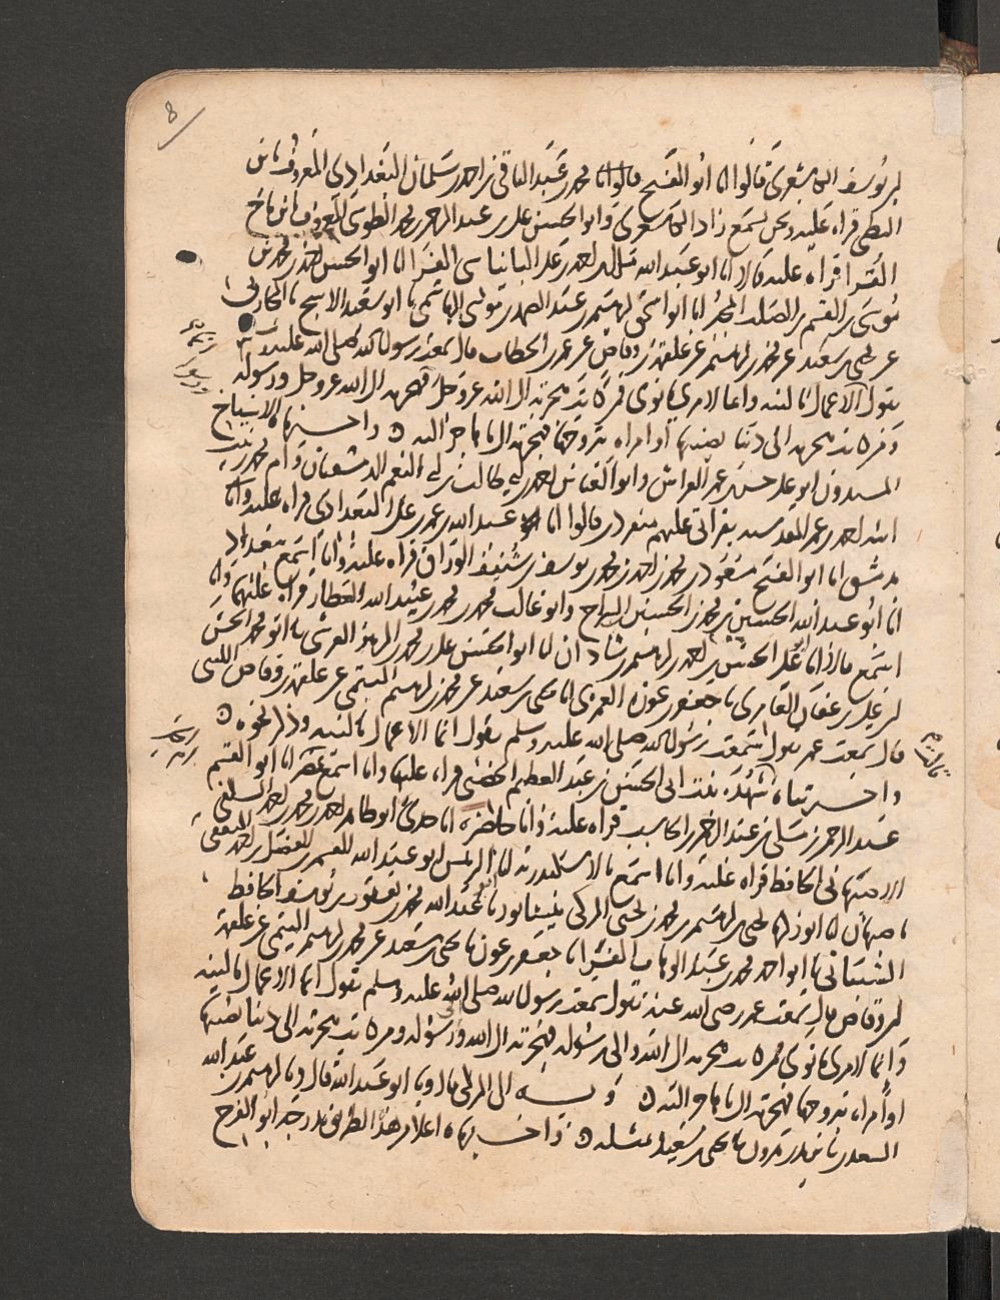 8
بن يوسف الكاشغري قالوا انا ابو الفتح محمد بن عبد الباقي بن احمد بن سلمان البغدادي المعروف بابن
البطي قراه عليه ونحن نسمع زاد الكاشغري وابو الحسن علي بن عبد الرحمن بن محمد الطوسي المعروف بابن تاج
القرا قراه عليه قالا انا ابو عبد الله مالك بن احمد بن علي البانياسي الفرا انا ابو الحسن احمد بن محمد بن
موسى بن القسم بن الصلت المجبر انا ابو اسحق ابرهيم بن عبد الصمد بن موسى الهاشمي نا ابو سعيد الاشج نا المحاربي
عن يحيى بن سعيد عن محمد بن ابرهيم عن علقمة بن وقاص عن عمر بن الخطاب قال سمعت رسول الله صلى الله عليه
يقول الاعمال بالنيه وانما لامرئ ما نوى فمن كانت هجرته الى الله عز وجل فهجرته الى الله عز وجل ورسوله
ومن كانت هجرته الى دنيا يصيبها او امراه يتزوجها فهجرته الى ما هاجر اليه واخبرنا الاشياخ
المسندون ابو علي حسن بن عمر وابو العباس احمد بن ابي طالب بن ابي النعم الدمشقيان وام محمد زينب
ابنة احمد بن عمر المقدسيه بقراتي عليهم منفردين قالوا انا عبد الله بن عمر بن علي البغدادي قراه عليه وانا
بدمشق انا ابو الفتح مسعود بن محمد بن احمد بن محمد بن يوسف بن شنيف الوراق قراه عليه وانا اسمع ببغداد
انا ابو عبد الله الحسين بن محمد بن الحسين السراج وابو غالب محمد بن محمد بن عبيد الله العطار قراه عليهما وانا
اسمع قالا انا ابو علي الحسن بن احمد بن ابرهيم بن شاذان انا ابو الحسن علي بن محمد بن الزبير القرشي نا ابو محمد الحسن
بن علي بن عفان العامري نا جعفر بن عون العمري انا يحيى بن سعيد عن محمد بن ابرهيم التيمي عن علقمة بن وقاص الليثي
قال سمعت عمر يقول سمعت رسول الله صلى الله عليه وسلم يقول انما الاعمال بالنيه وذكر نحوه
واخبرتناه شهدة بنت ابي الحسن بن عبد العظيم الحصني قراه عليها وانا اسمع بمصر انا ابو القسم
عبد الرحمن بن مكي بن عبد الرحمن الحاسب قراه عليه وانا حاضره انا جدي ابو طاهر احمد بن محمد بن احمد السلفي
الاصبهاني الحافظ قراه عليه وانا اسمع بالاسكندريه انا الرئيس ابو عبد الله القسم بن الفضل بن احمد الثقفي
باصبهان انا ابو زكريا يحيى بن ابرهيم بن محمد بن يحيى المزكي بنيسابور نا ابو عبد الله محمد بن يعقوب بن يوسف الحافظ
الشيباني نا ابو احمد محمد بن عبد الوهاب الفرا انا جعفر بن عون نا يحيى بن سعيد عن محمد بن ابرهيم التيمي عن علقمة
بن وقاص قال سمعت عمر رضي الله عنه يقول سمعت رسول الله صلى الله عليه وسلم يقول انما الاعمال بالنيه
وانما لامرئ ما نوى فمن كانت هجرته الى الله والى رسوله فهجرته الى الله ورسوله ومن كانت هجرته الى دنيا يصيبها
او امراه يتزوجها فهجرته الى ما هاجر اليه وبه الى المزكي قال ونا ابو عبد الله قال ونا ابرهيم بن عبد الله
السعدي نا يزيد بن هرون نا يحيى بن سعيد بمثله واخبرناه اعلا من هذا الطريق بدرجه ابو الفرج